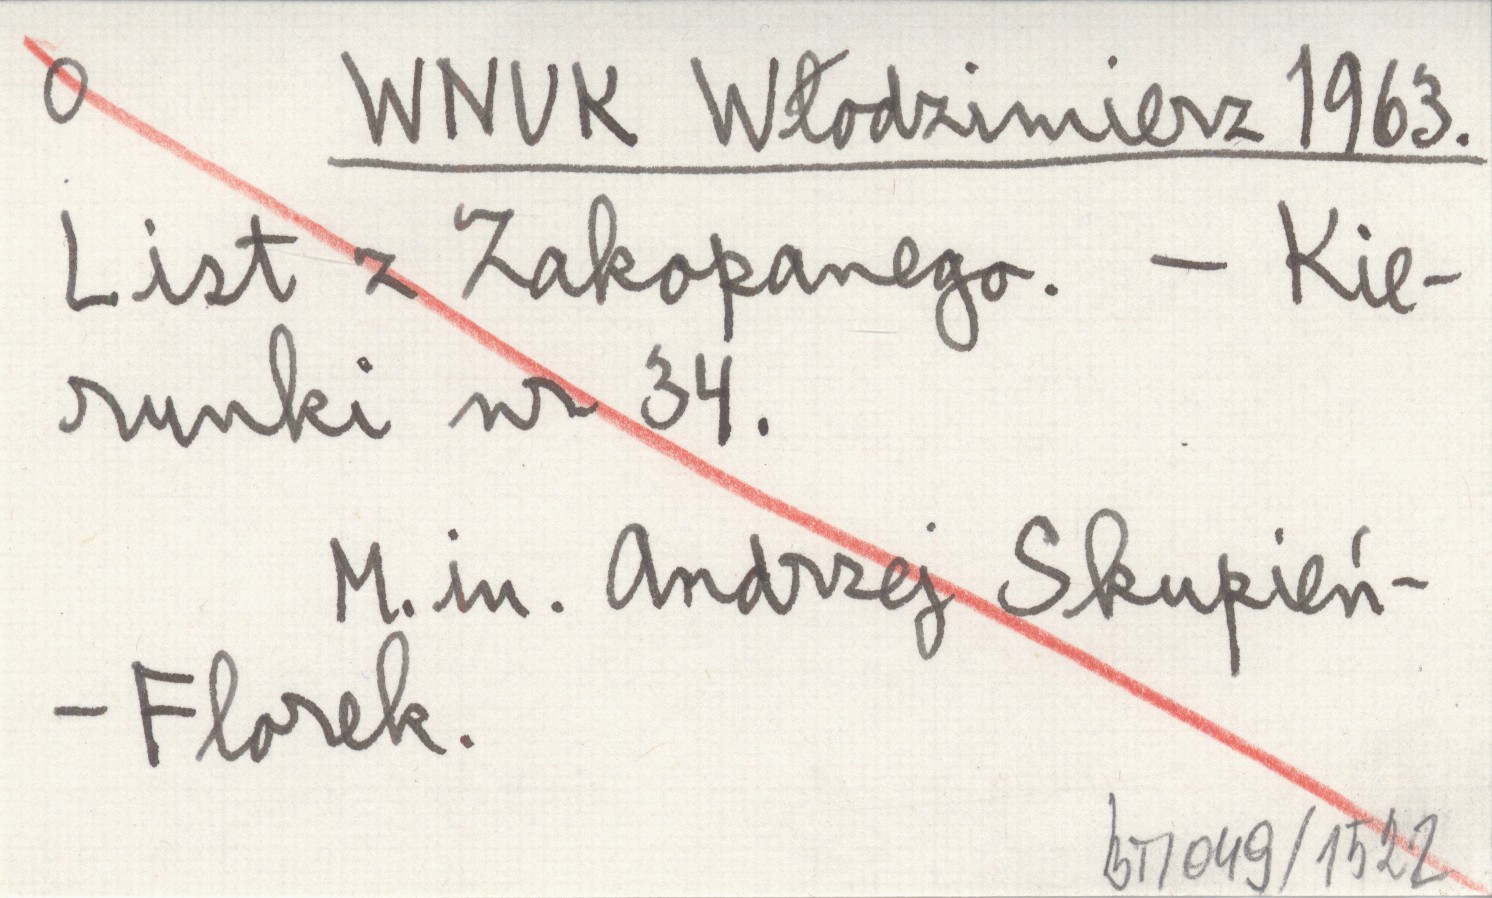 O WNUK Włodzimierz 1963.
List z Zakopanego. – Kie-
runki nr 34.
M.in. Andrzej Skupień-
-Florek.
BT/049/1522